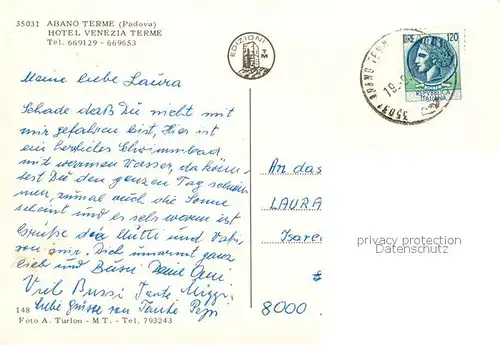 35031 ABANO TERME (Padova)
HOTEL VENEZIA TERME
Tel. 669129 - 669653
EDIZIONI
TM
LIRE 120
REPVBBLICA
ITALIANA
35031 ABANO TERM
19
Meine liebe Laura
Schade daß Du nicht mit
mir gefahren bist, Hier ist
ein herrliches Schwimmbad
mit warmen Wasser, da könn-
test Du den ganzen Tag schwim-
men, zumal auch die Sonne
scheint und es sehr warm ist
Grüße die Mutti und Vati
von mir. Dich umarmt ganz
lieb und Bussi Deine Omi
Viele Bussi Tante Mizzi
Liebe Grüsse von Tante Pepi
An das
LAURA
Isare
8000
privacy protection
Datenschutz
148
Foto A. Turlon - M.T. - Tel. 793243